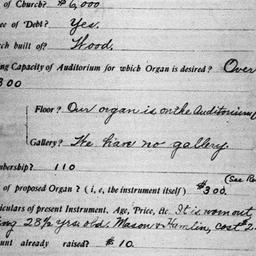 of Church? $6,000
ee of Debt? Yes.
ch built of? Wood.
ng Capacity of Auditorium for which Organ is desired? Over
300
Floor? Our organ is on the Auditorium
Gallery? We have no gallery.
mbership? 110
(See Re
of proposed Organ? (i, e, the instrument itself) $300.
iculars of present Instrument, Age, Price, Etc. It is worn out
ing 28½ yrs old. Mason & Hamlin, cost $2
unt already raised? $10.